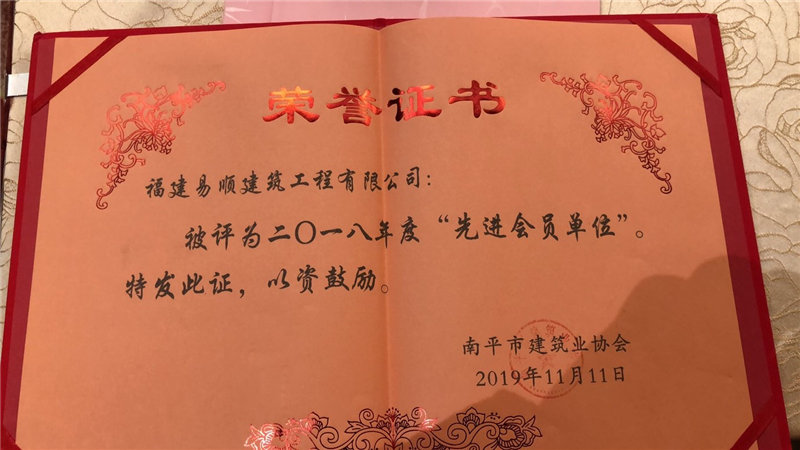 荣誉证书
福建易顺建筑工程有限公司：
被评为二〇一八年度“先进会员单位”。
特发此证，以资鼓励。
南平市建筑业协会
2019年11月11日